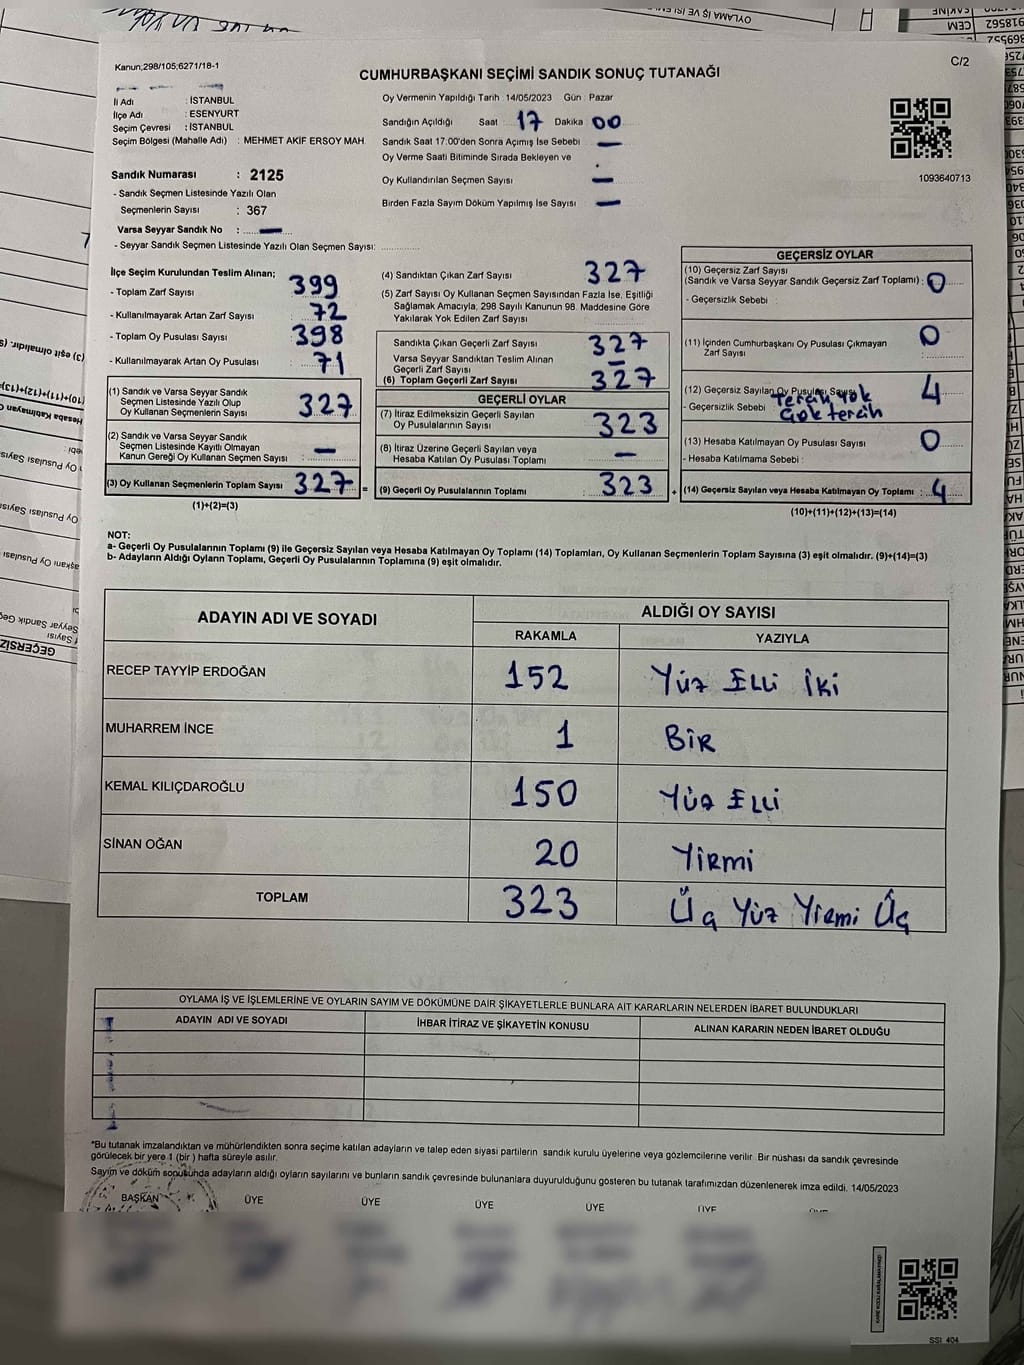 Kanun,298/105;6271/18-1
C/2
CUMHURBAŞKANI SEÇİMİ SANDIK SONUÇ TUTANAĞI
İli Adı : İSTANBUL
İlçe Adı : ESENYURT
Seçim Çevresi : İSTANBUL
Seçim Bölgesi (Mahalle Adı) : MEHMET AKİF ERSOY MAH
Sandık Numarası : 2125
- Sandık Seçmen Listesinde Yazılı Olan
Seçmenlerin Sayısı : 367
Varsa Seyyar Sandık No : —
- Seyyar Sandık Seçmen Listesinde Yazılı Olan Seçmen Sayısı:
Oy Vermenin Yapıldığı Tarih : 14/05/2023 Gün : Pazar
Sandığın Açıldığı Saat 17 Dakika 00
Sandık Saat 17:00'den Sonra Açımış İse Sebebi —
Oy Verme Saati Bitiminde Sırada Bekleyen ve
Oy Kullandırılan Seçmen Sayısı —
Birden Fazla Sayım Döküm Yapılmış İse Sayısı —
1093640713
İlçe Seçim Kurulundan Teslim Alınan;
- Toplam Zarf Sayısı 399
- Kullanılmayarak Artan Zarf Sayısı : 72
- Toplam Oy Pusulası Sayısı : 398
- Kullanılmayarak Artan Oy Pusulası : 71
(1) Sandık ve Varsa Seyyar Sandık
Seçmen Listesinde Yazılı Olup
Oy Kullanan Seçmenlerin Sayısı : 327
(2) Sandık ve Varsa Seyyar Sandık
Seçmen Listesinde Kayıtlı Olmayan
Kanun Gereği Oy Kullanan Seçmen Sayısı : —
(3) Oy Kullanan Seçmenlerin Toplam Sayısı : 327 =
(1)+(2)=(3)
(4) Sandıktan Çıkan Zarf Sayısı : 327
(5) Zarf Sayısı Oy Kullanan Seçmen Sayısından Fazla İse, Eşitliği
Sağlamak Amacıyla, 298 Sayılı Kanunun 98. Maddesine Göre
Yakılarak Yok Edilen Zarf Sayısı :
Sandıkta Çıkan Geçerli Zarf Sayısı : 327
Varsa Seyyar Sandıktan Teslim Alınan
Geçerli Zarf Sayısı : —
(6) Toplam Geçerli Zarf Sayısı : 327
GEÇERLİ OYLAR
(7) İtiraz Edilmeksizin Geçerli Sayılan
Oy Pusulalarının Sayısı : 323
(8) İtiraz Üzerine Geçerli Sayılan veya
Hesaba Katılan Oy Pusulası Toplamı : —
(9) Geçerli Oy Pusulalarının Toplamı : 323 +
GEÇERSİZ OYLAR
(10) Geçersiz Zarf Sayısı
(Sandık ve Varsa Seyyar Sandık Geçersiz Zarf Toplamı) : 0
- Geçersizlik Sebebi :
(11) İçinden Cumhurbaşkanı Oy Pusulası Çıkmayan
Zarf Sayısı : 0
(12) Geçersiz Sayılan Oy Pusulası Sayısı : 4
- Geçersizlik Sebebi Tercih Yok
Çok tercih
(13) Hesaba Katılmayan Oy Pusulası Sayısı : 0
- Hesaba Katılmama Sebebi :
(14) Geçersiz Sayılan veya Hesaba Katılmayan Oy Toplamı : 4
(10)+(11)+(12)+(13)=(14)
NOT:
a- Geçerli Oy Pusulalarının Toplamı (9) ile Geçersiz Sayılan veya Hesaba Katılmayan Oy Toplamı (14) Toplamları, Oy Kullanan Seçmenlerin Toplam Sayısına (3) eşit olmalıdır. (9)+(14)=(3)
b- Adayların Aldığı Oyların Toplamı, Geçerli Oy Pusulalarının Toplamına (9) eşit olmalıdır.
ADAYIN ADI VE SOYADI
ALDIĞI OY SAYISI
RAKAMLA YAZIYLA
RECEP TAYYİP ERDOĞAN 152 Yüz Elli İki
MUHARREM İNCE 1 BİR
KEMAL KILIÇDAROĞLU 150 Yüz Elli
SİNAN OĞAN 20 Yirmi
TOPLAM 323 Üç Yüz Yirmi Üç
OYLAMA İŞ VE İŞLEMLERİNE VE OYLARIN SAYIM VE DÖKÜMÜNE DAİR ŞİKAYETLERLE BUNLARA AİT KARARLARIN NELERDEN İBARET BULUNDUKLARI
ADAYIN ADI VE SOYADI
İHBAR İTİRAZ VE ŞİKAYETİN KONUSU
ALINAN KARARIN NEDEN İBARET OLDUĞU
*Bu tutanak imzalandıktan ve mühürlendikten sonra seçime katılan adayların ve talep eden siyasi partilerin sandık kurulu üyelerine veya gözlemcilerine verilir. Bir nüshası da sandık çevresinde
görülecek bir yere 1 (bir) hafta süreyle asılır.
Sayım ve döküm sonucunda adayların aldığı oyların sayılarını ve bunların sandık çevresinde bulunanlara duyurulduğunu gösteren bu tutanak tarafımızdan düzenlenerek imza edildi. 14/05/2023
BAŞKAN ÜYE ÜYE ÜYE ÜYE ÜYE
SSI 404